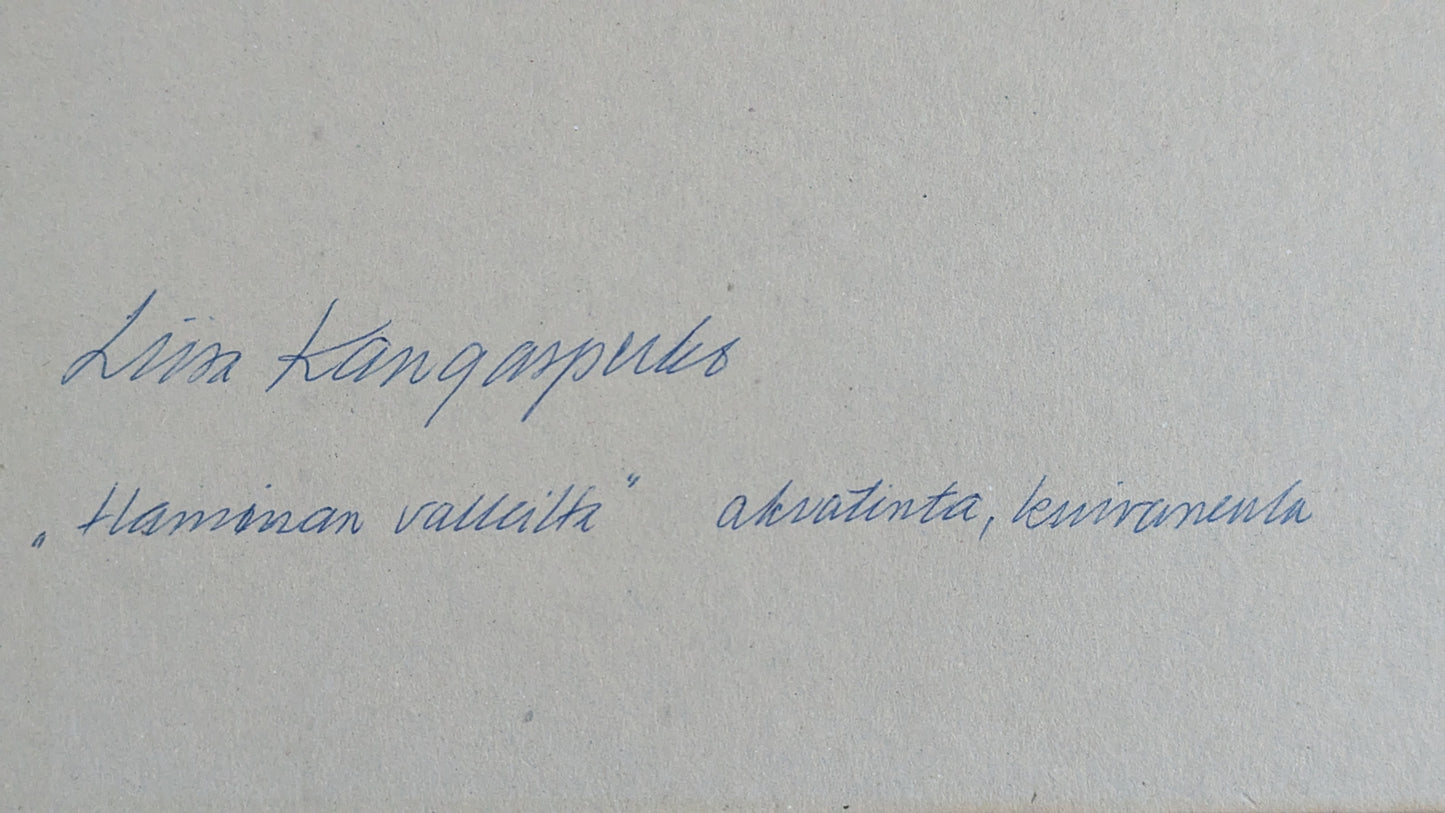 Liisa Kangasperko
„Haminan valleilta” akvatinta, kuivaneula